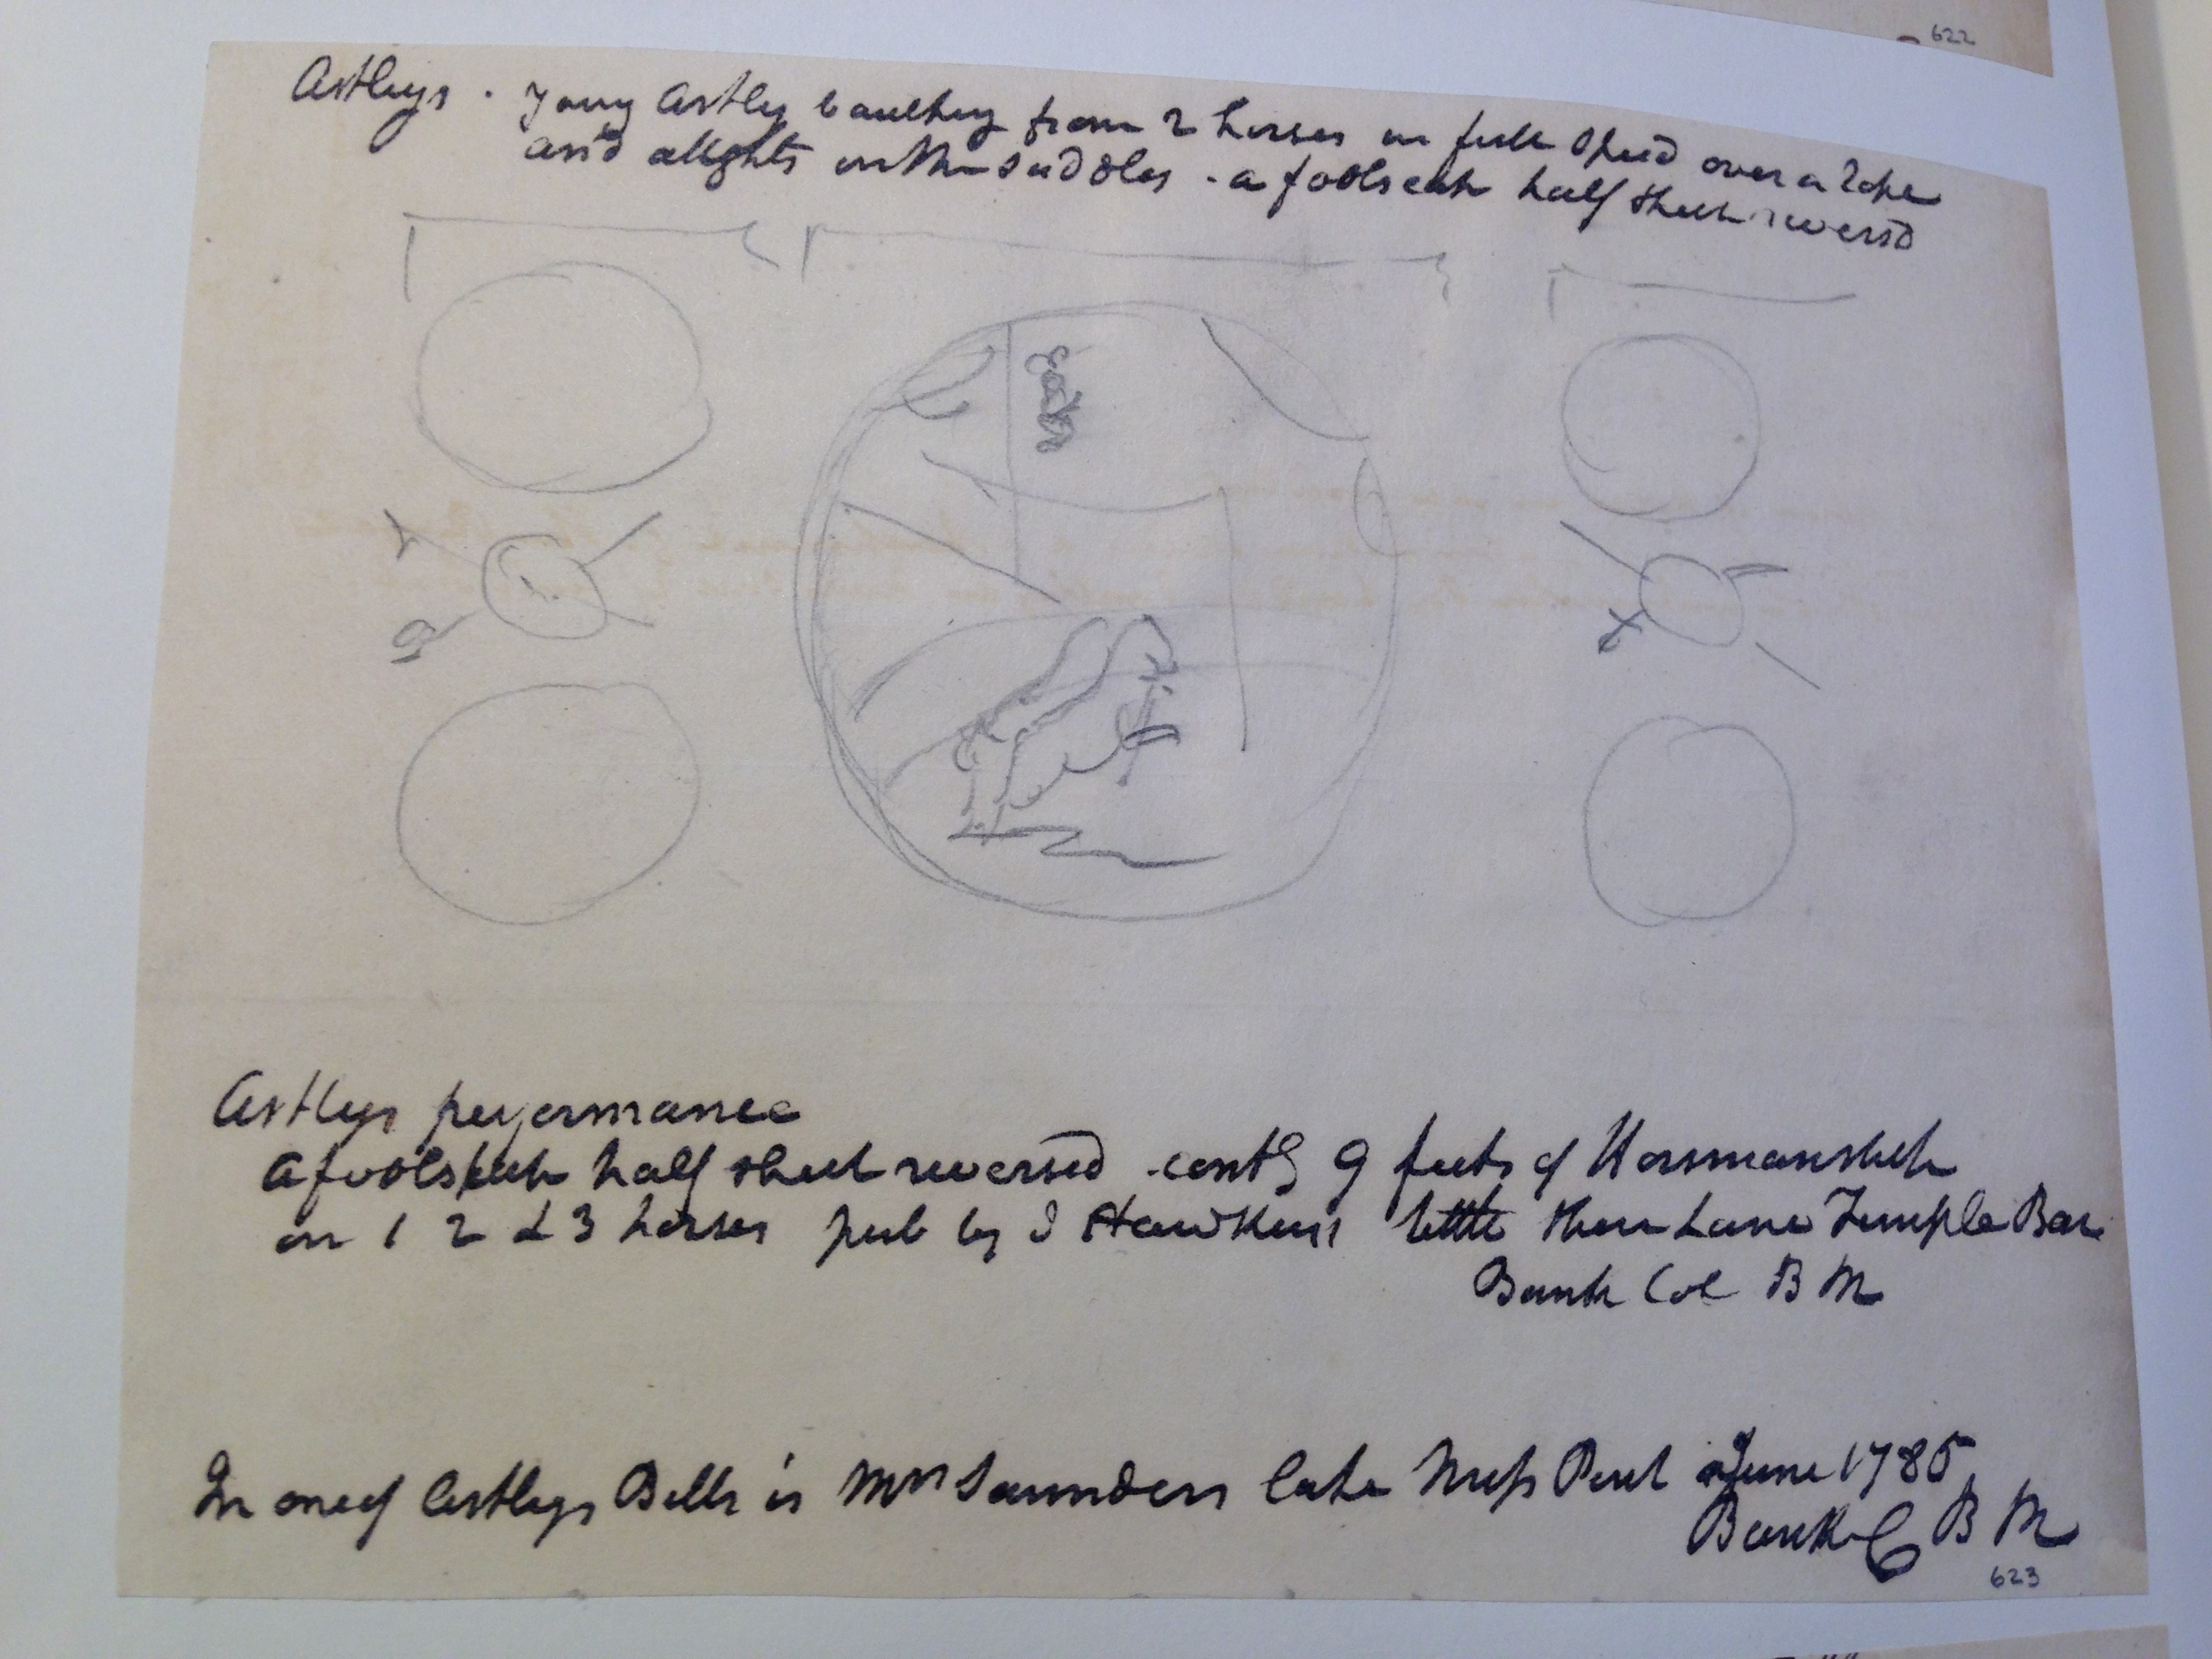 622
Astleys . Young Astley vaulting from 2 horses on full speed over a
and alights on the saddles . a foolscap half sheet reversd
Astleys performance
A foolscap half sheet reversed . contg 9 feets of Horsmanship
on 1 2 & 3 horses pub by J Hawkins Shere Lane Temple Bar
Bank Col B M
In one of Astleys Bills is Mrs Saunders late Miss June 1785
Bank C B M
623